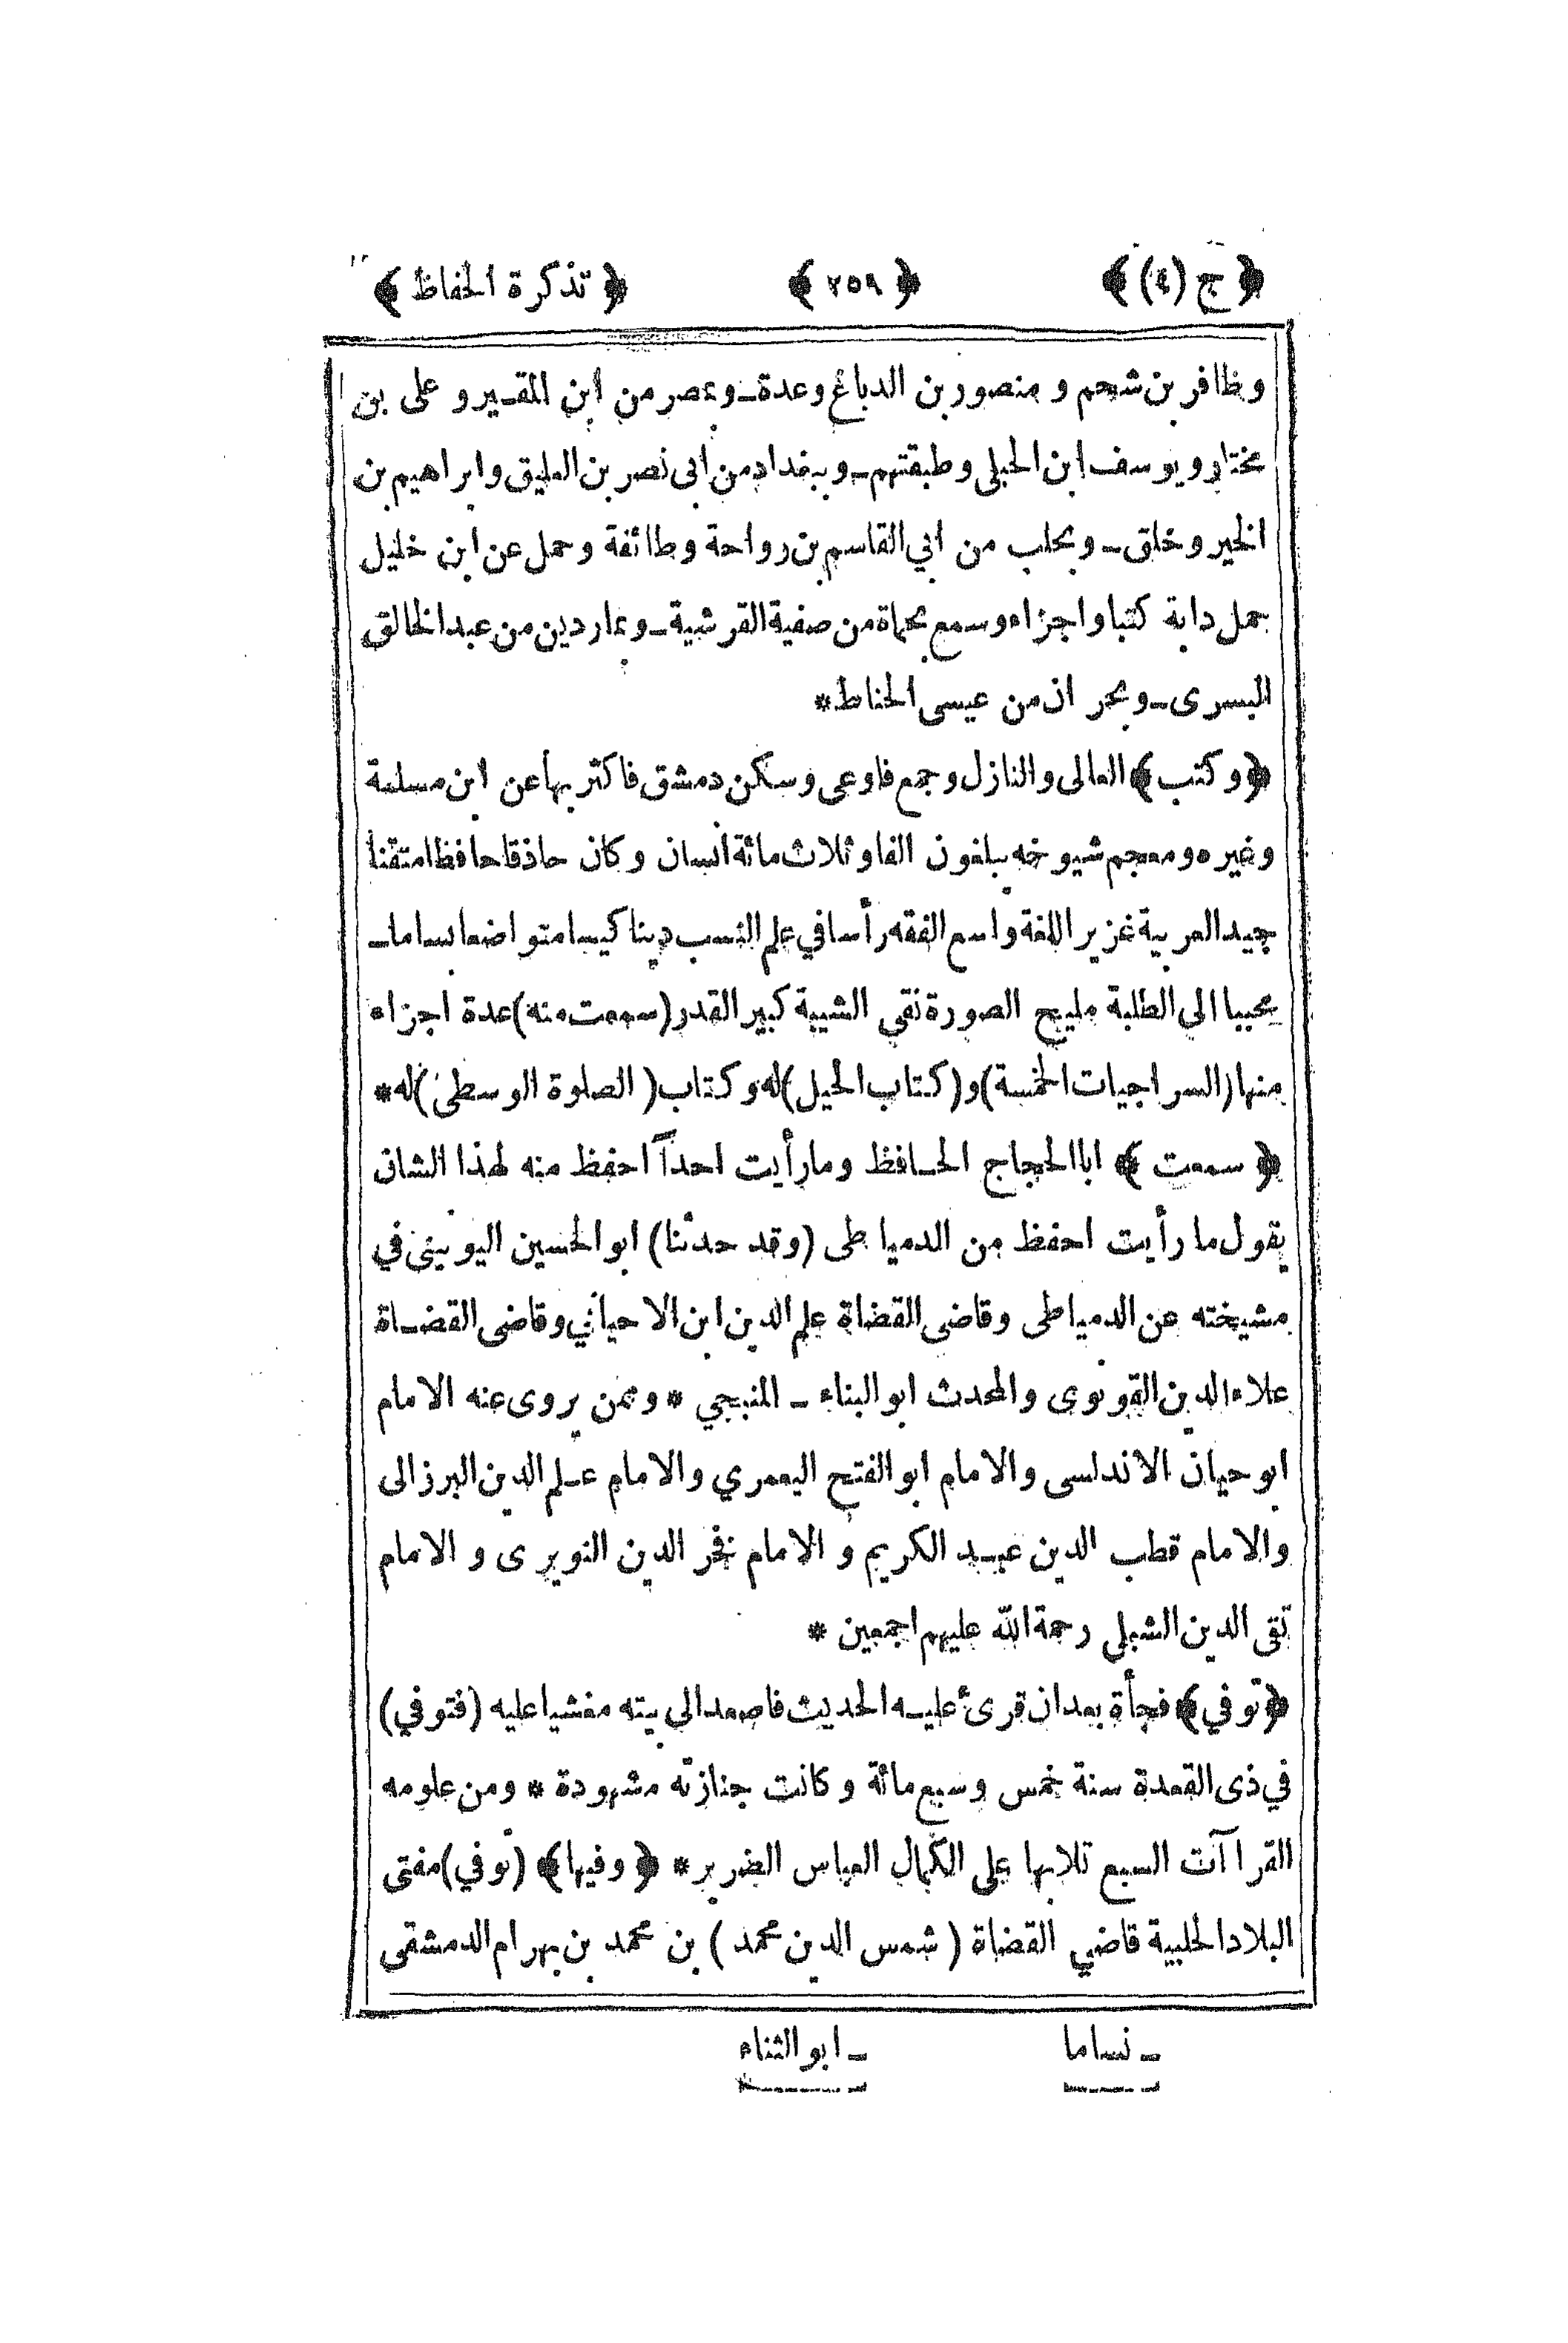 ﴿ ج (٤) ﴾ ﴿ ٢٥٩ ﴾ ﴿ تذكرة الحفاظ ﴾
وظافر بن شحم و منصور بن الدباغ وعدة ـ وبمصر من ابن المقـير و على بن
مختار ويوسف ابن المخيلى وطبقتهم ـ وببغداد من ابى نصر بن العليق وابراهيم بن
الخير وخلق ـ وبحلب من ابي القاسم بن رواحة وطائفة وحمل عن ابن خليل
حمل دابة كتبا واجزاء وسمع بحماة من صفية القرشية ـ وبماردين من عبد الخالق
البسرى ـ وبحران من عيسى الحناط *
﴿ وكتب ﴾ العالى والنازل وجمع فاوعى وسكن دمشق فاكثر بها عن ابن مسلمة
وغيره ومعجم شيوخه يبلغون الفا وثلاث مائة انسان وكان حاذقا حافظا متقنا
جيد العربية غزير اللغة واسع الفقه رأسا في علم النسب دينا كيسا متواضعا بساما ـ
محببا الى الطلبة مليح الصورة نقي الشيبة كبير القدر (سمعت منه) عدة اجزاء
منها (السراجيات الخمسة) و (كتاب الخيل) له وكتاب ( الصلوة الوسطى ) له *
﴿ سمعت ﴾ ابا الحجاج الحـافظ وما رأيت احداً احفظ منه لهذا الشان
يقول ما رأيت احفظ من الدمياطى (وقد حدثنا) ابو الحسين اليونينى في
مشيخته عن الدمياطى وقاضى القضاة علم الدين ابن الاخنائي وقاضى القضـاة
علاء الدين القونوى والمحدث ابو البناء ـ المنبجي * وممن يروى عنه الامام
ابو حيان الاندلسى والامام ابو الفتح اليعمري والامام عـلم الدين البرزالى
والامام قطب الدين عبـد الكريم و الامام فخر الدين النويرى و الامام
تقى الدين الشبلى رحمة الله عليهم اجمعين *
﴿ توفي ﴾ فجأة بعد ان قرئ عليـه الحديث فاصعد الى بيته مغشيا عليه (فتوفي)
في ذى القعدة سنة خمس وسبع مائة وكانت جنازته مشهودة * ومن علومه
القراآت السبع تلا بها على الكمال العباس الضرير * ﴿ وفيها ﴾ (توفي) مفتى
البلاد الحلبية قاضي القضاة ( شمس الدين محمد ) بن محمد بن بهرام الدمشقى
ـ نساما ـ ابو الثناء